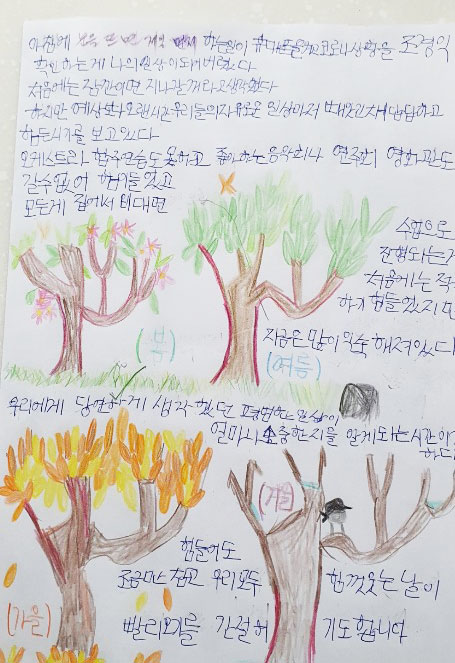 아침에 눈을 뜨면 제일 먼저 하는일이 휴대폰을켜고코로나상황을 조경익
확인하는게 나의일상이되어버렸다
처음에는 잠깐이면 지나갈꺼라고생각했다
하지만 예상보다오랜시간우리들의자유로운 일상마저 빼앗긴채답답하고
힘든시기를 보고있다
오케스트라 합주연습도못하고 좋아하는음악회나 연주회 영화관도
갈수없어 힘이들었고
모든게 집에서 비대면
수업으로
진행되는거
처음에는 적
하기 힘들었지만
지금은많이익숙해져있다
(봄)
(여름)
우리에게 당연하게 생각했던 평범한일상이
얼마나소중한지를 알게되는시간이기
하드
(겨울)
힘들어도
조금만더참고 우리모두 함께웃는날이
(가을)
빨리오기를 간절히 기도합니다